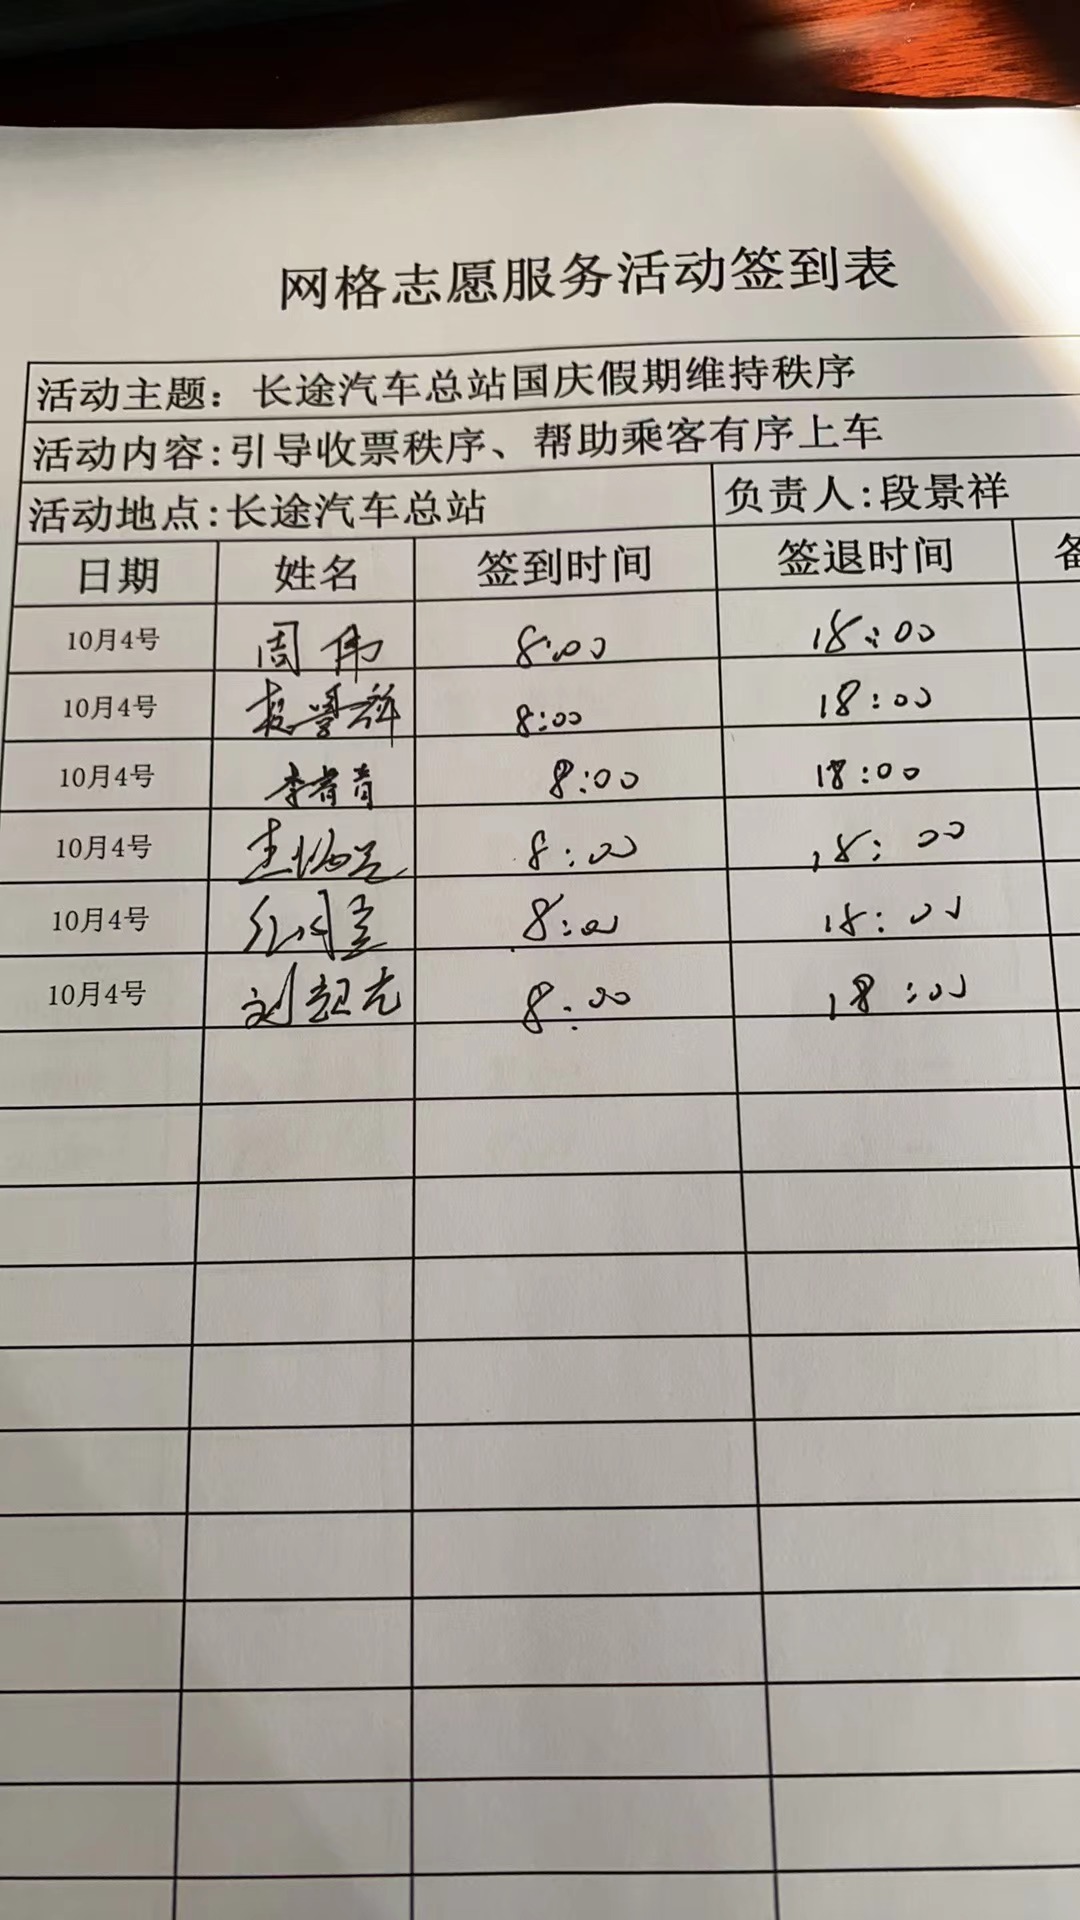 网格志愿服务活动签到表
活动主题：长途汽车总站国庆假期维持秩序
活动内容:引导收票秩序、帮助乘客有序上车
活动地点:长途汽车总站 负责人:段景祥
日期 姓名 签到时间 签退时间
10月4号 周伟 8:00 18:00
10月4号 段景祥 8:00 18:00
10月4号 李 青 8:00 18:00
10月4号 8:00 18:00
10月4号 8:00 18:00
10月4号 刘 8:00 18:00